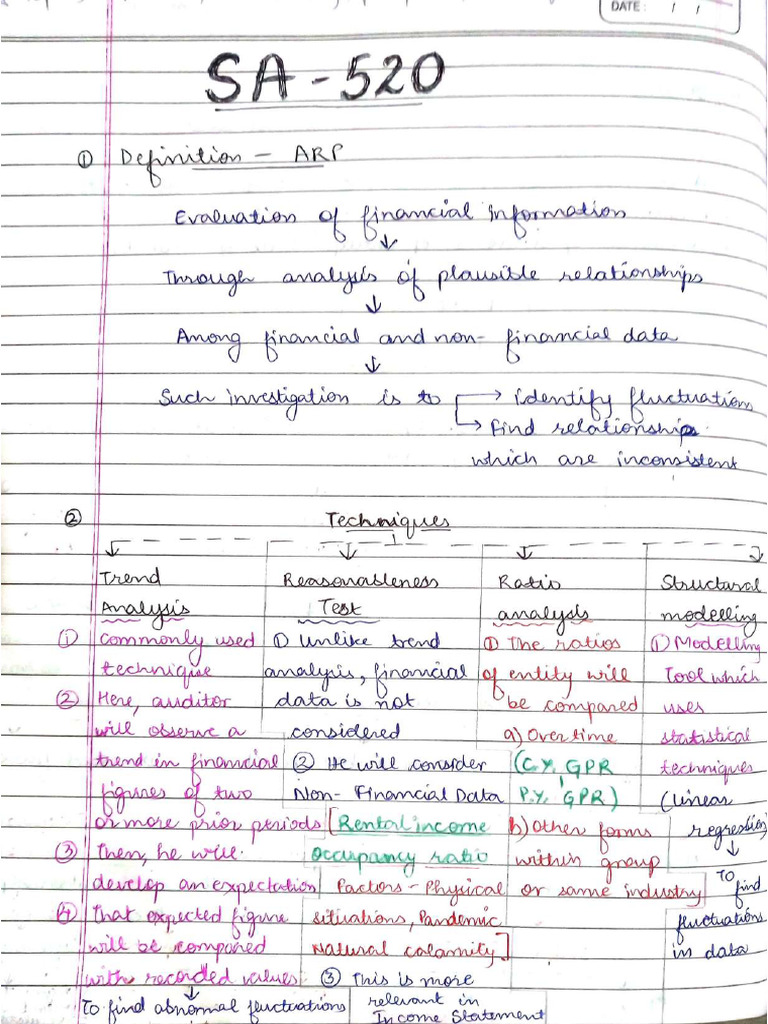 DATE: / /
SA-520
① Definition - ARP
Evaluation of financial information
↓
Through analysis of plausible relationships
↓
Among financial and non-financial data
↓
Such investigation is to → identify fluctuation
→ find relationships
which are inconsistent
② Techniques
Trend
Analysis
① commonly used
technique
② Here, auditor
will observe a
trend in financial
figures of two
or more prior periods
③ Then, he will
develop an expectation
④ That expected figure
will be compared
with recorded values
↓
To find abnormal fluctuations
Reasonableness
Test
① Unlike trend
analysis, financial
data is not
considered
② He will consider
Non-Financial Data
[Rental income
occupancy ratio
Factors - Physical
situations, Pandemic
Natural calamity]
③ This is more
relevant in
Income Statement
Ratio
analysis
① The ratios
of entity will
be compared
a) Over time
(C.Y. GPR
P.Y. GPR)
b) Other forms
within group
or same industry
Structural
modelling
① Modelling
Tool which
uses
statistical
techniques
(linear
regression)
↓
To find
fluctuations
in data